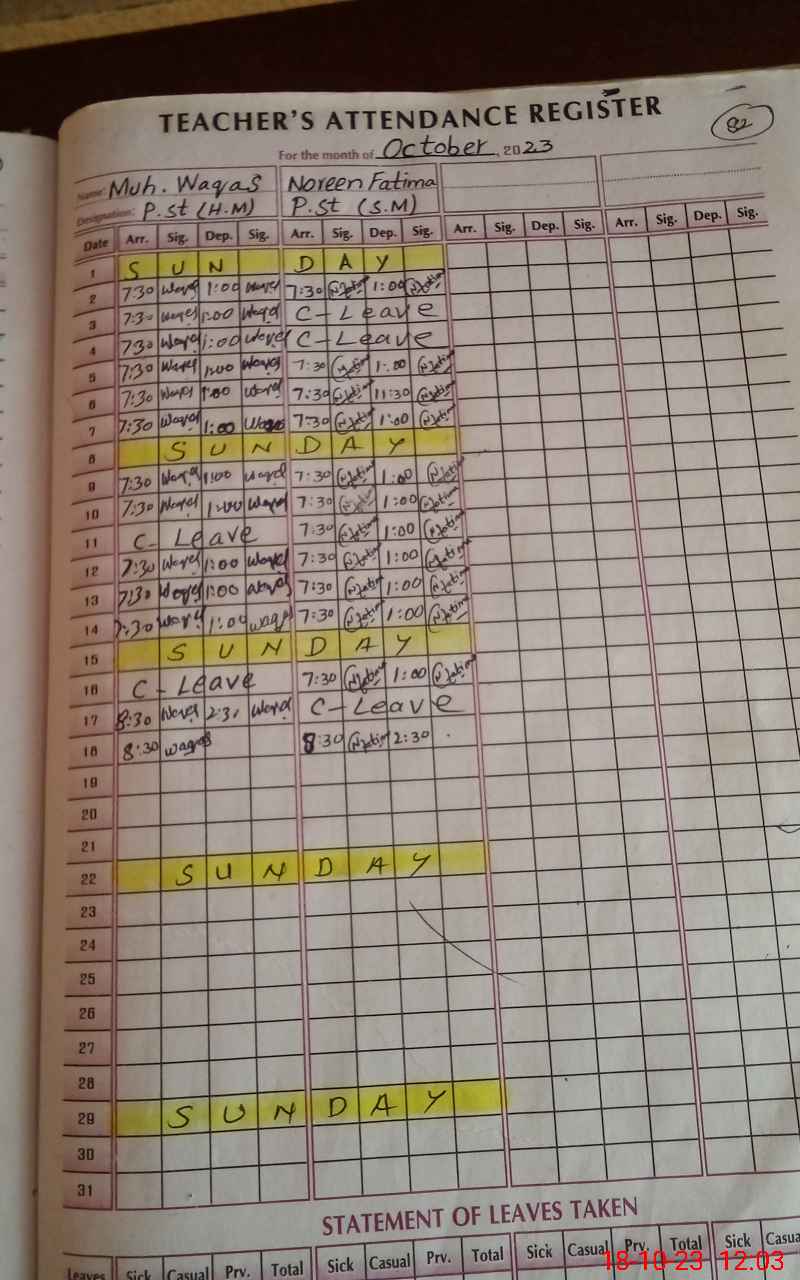 TEACHER'S ATTENDANCE REGISTER
82
For the month of October, 2023
Name: Muh. Waqas Noreen Fatima
Designation: P.st (H.M) P.st (S.M)
Date Arr. Sig. Dep. Sig. Arr. Sig. Dep. Sig. Arr. Sig. Dep. Sig. Arr. Sig. Dep. Sig.
1 S U N D A Y
2 7:30 Waqas 1:00 Waqas 7:30 1:00
3 7:30 Waqas 1:00 Waqas C-Leave
4 7:30 Waqas 1:00 Waqas C-Leave
5 7:30 Waqas 1:00 Waqas 7:30 1:00
6 7:30 Waqas 1:00 Waqas 7:30 11:30
7 7:30 Waqas 1:00 Waqas 7:30 1:00
8 S U N D A Y
9 7:30 Waqas 1:00 Waqas 7:30 1:00
10 7:30 Waqas 1:00 Waqas 7:30 1:00
11 C-Leave 7:30 1:00
12 7:30 Waqas 1:00 Waqas 7:30 1:00
13 7:30 Waqas 1:00 Waqas 7:30 1:00
14 7:30 Waqas 1:00 Waqas 7:30 1:00
15 S U N D A Y
16 C-Leave 7:30 1:00
17 8:30 Waqas 2:30 Waqas C-Leave
18 8:30 Waqas 8:30 2:30
19
20
21
22 S U N D A Y
23
24
25
26
27
28
29 S U N D A Y
30
31
STATEMENT OF LEAVES TAKEN
Leaves Sick Casual Prv. Total Sick Casual Prv. Total Sick Casual Prv. Total Sick Casua
18-10-23 12.03